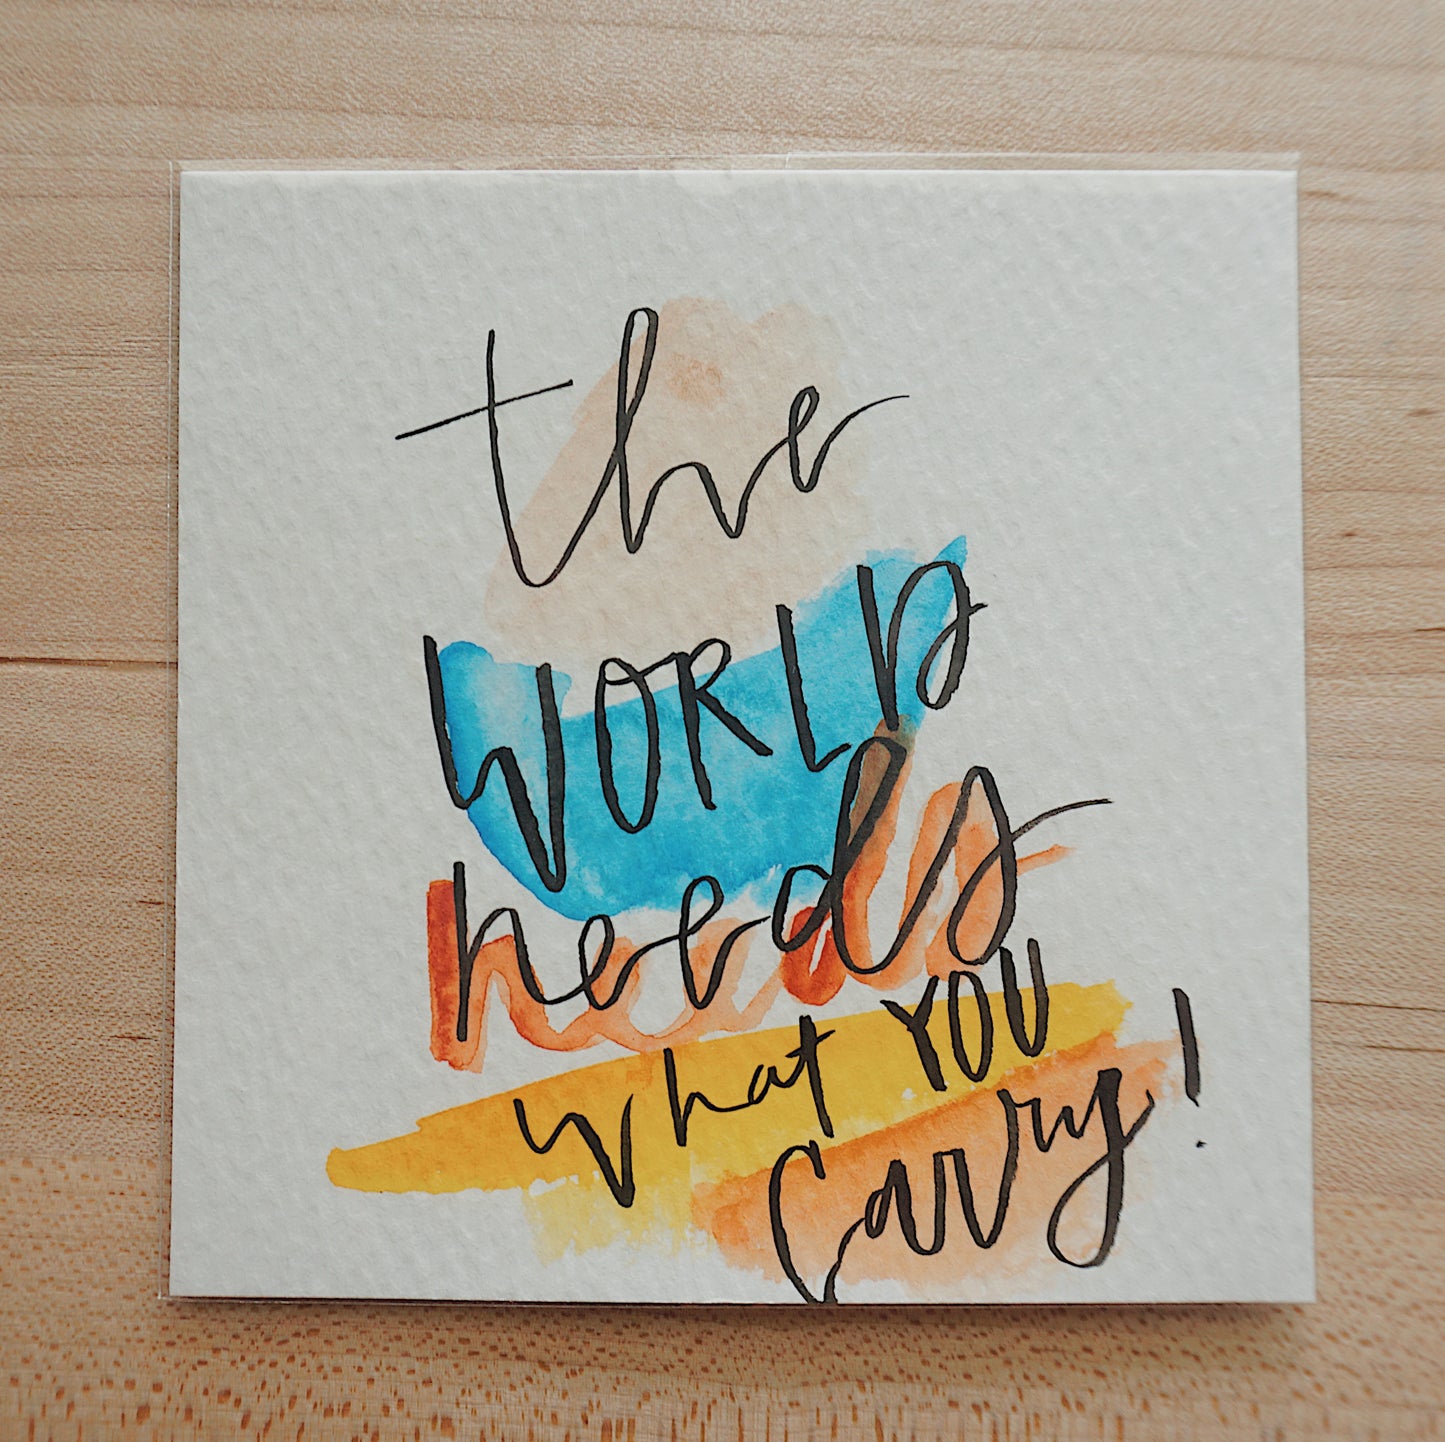 the
WORLD
needs
what YOU
Carry!